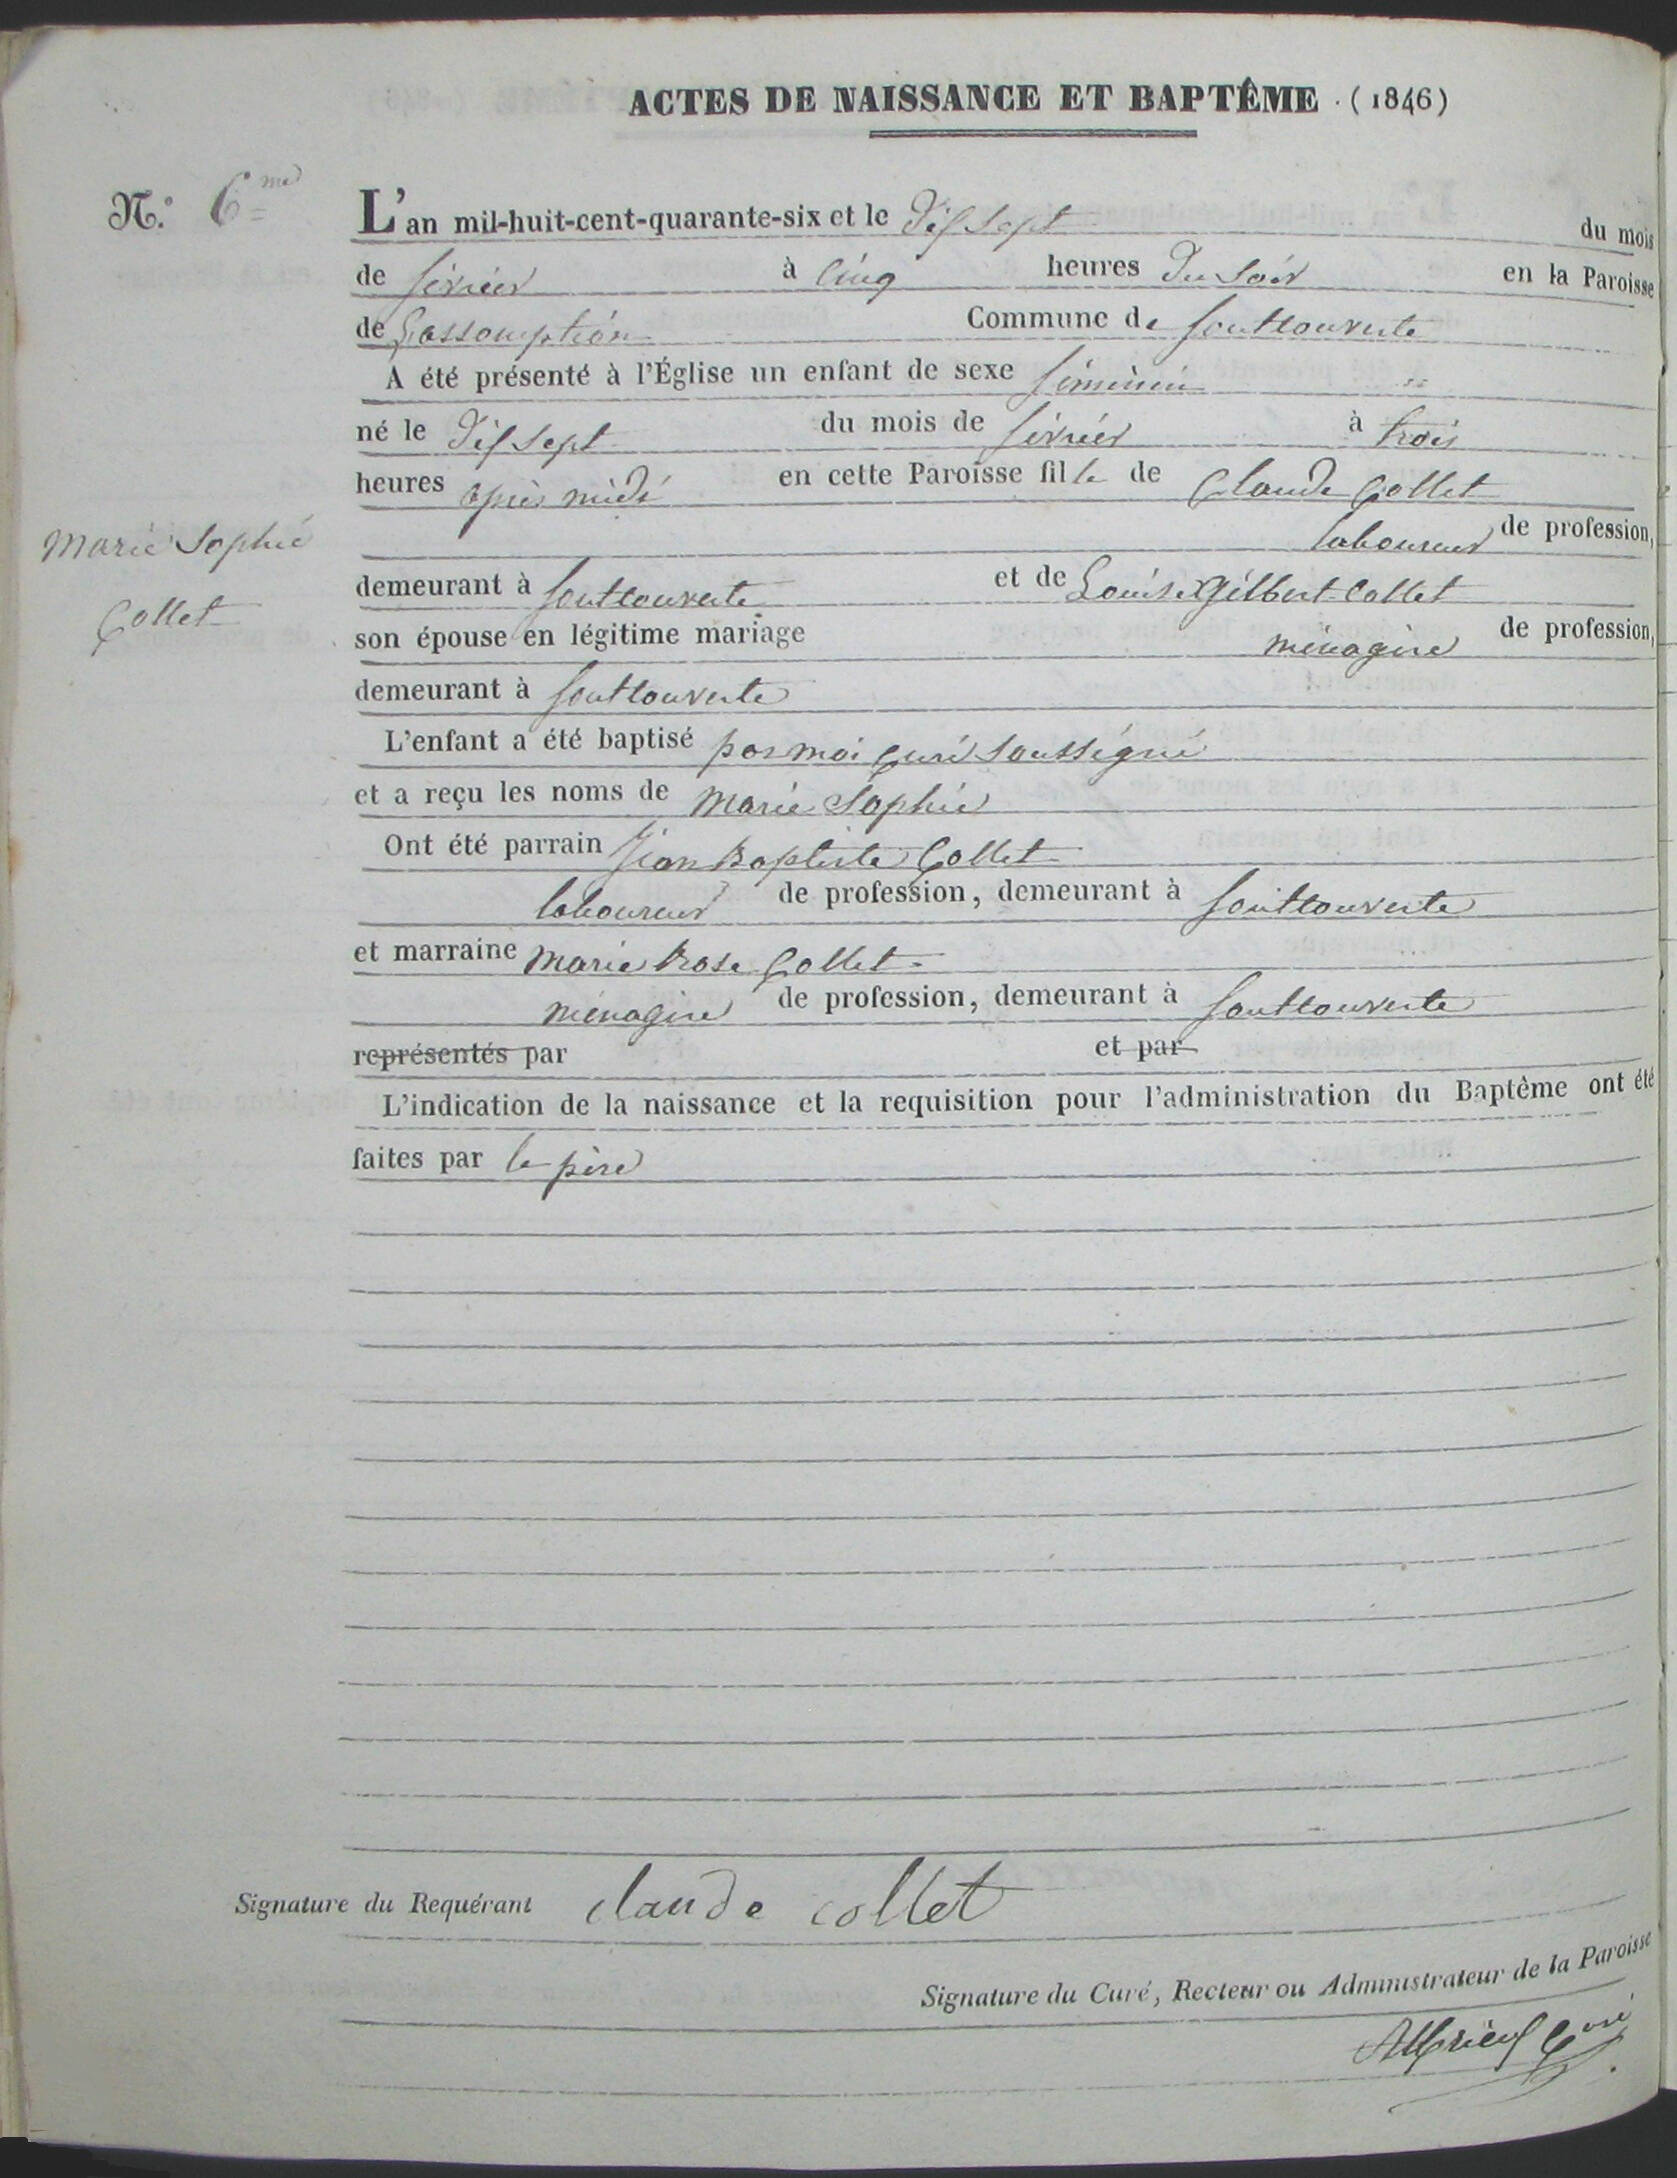 ACTES DE NAISSANCE ET BAPTÊME (1846)
N.º 6me
L'an mil-huit-cent-quarante-six et le dix sept du mois
de février à cinq heures du soir en la Paroisse
de Lassomption Commune de fonttouverte
A été présenté à l'Église un enfant de sexe féminin
né le dix sept du mois de février à trois
heures après midi en cette Paroisse fille de Claude Collet
laboureur de profession,
Marie Sophie
Collet
demeurant à fonttouverte et de Louise Gilbert-Collet
son épouse en légitime mariage ménagère de profession,
demeurant à fonttouverte
L'enfant a été baptisé par moi Curé soussigné
et a reçu les noms de Marie Sophie
Ont été parrain Jean Baptiste Collet
laboureur de profession, demeurant à fonttouverte
et marraine Marie Rose Collet
ménagère de profession, demeurant à fonttouverte
représentés par et par
L'indication de la naissance et la requisition pour l'administration du Baptême ont été
faites par le père
Signature du Requérant claude collet
Signature du Curé, Recteur ou Administrateur de la Paroisse
Curé